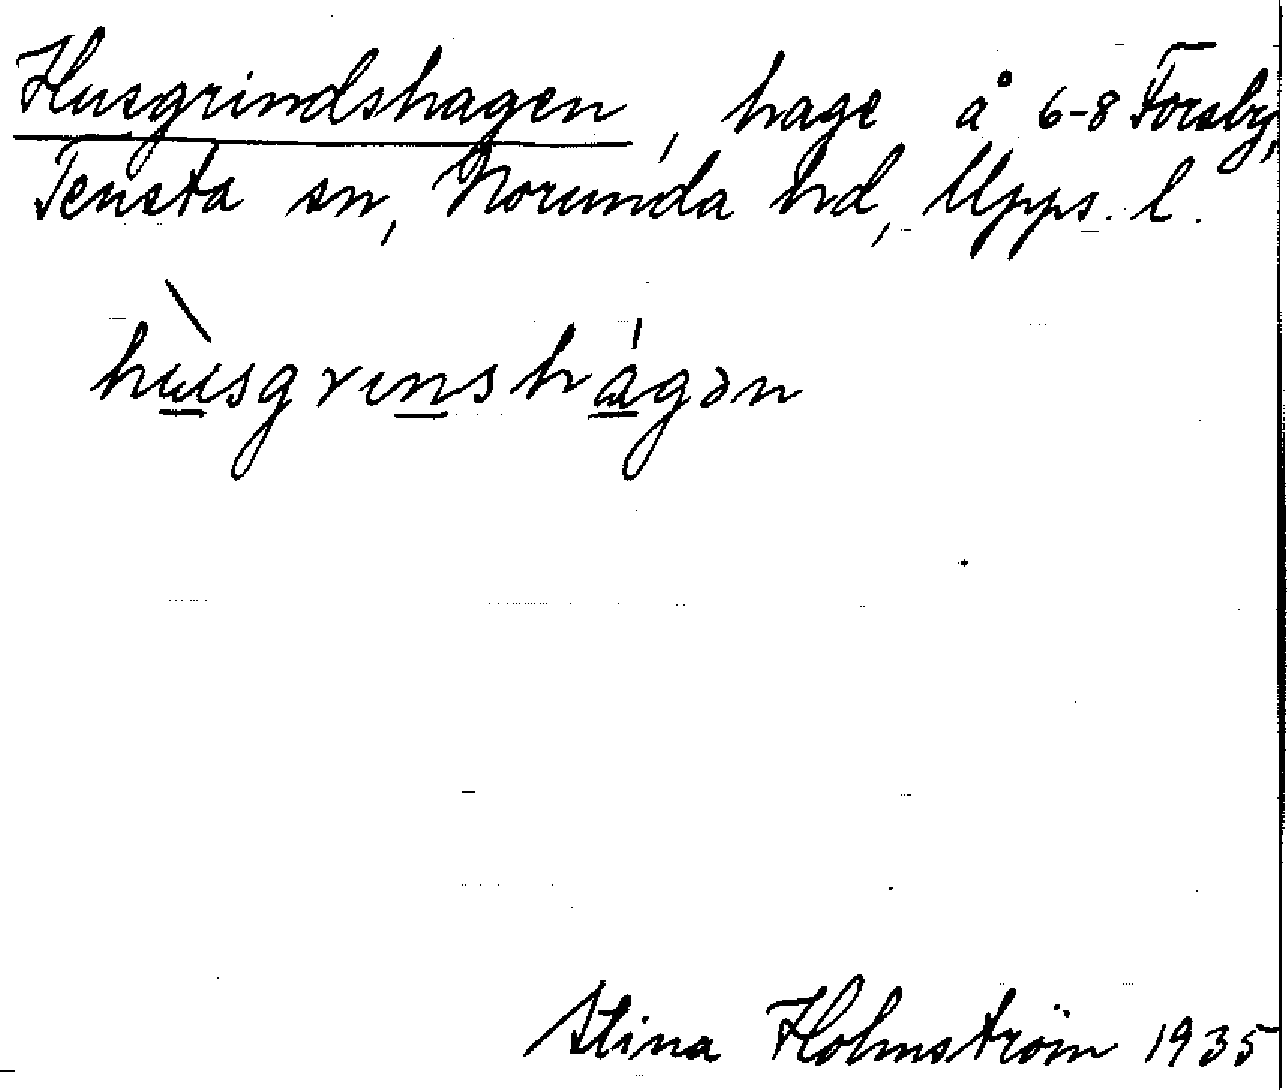 Husgrindshagen, hage å 6-8 Forsby,
Tensta sn, Norunda hd, Upps. l.
hùsgrenshágən
Stina Holmström 1935